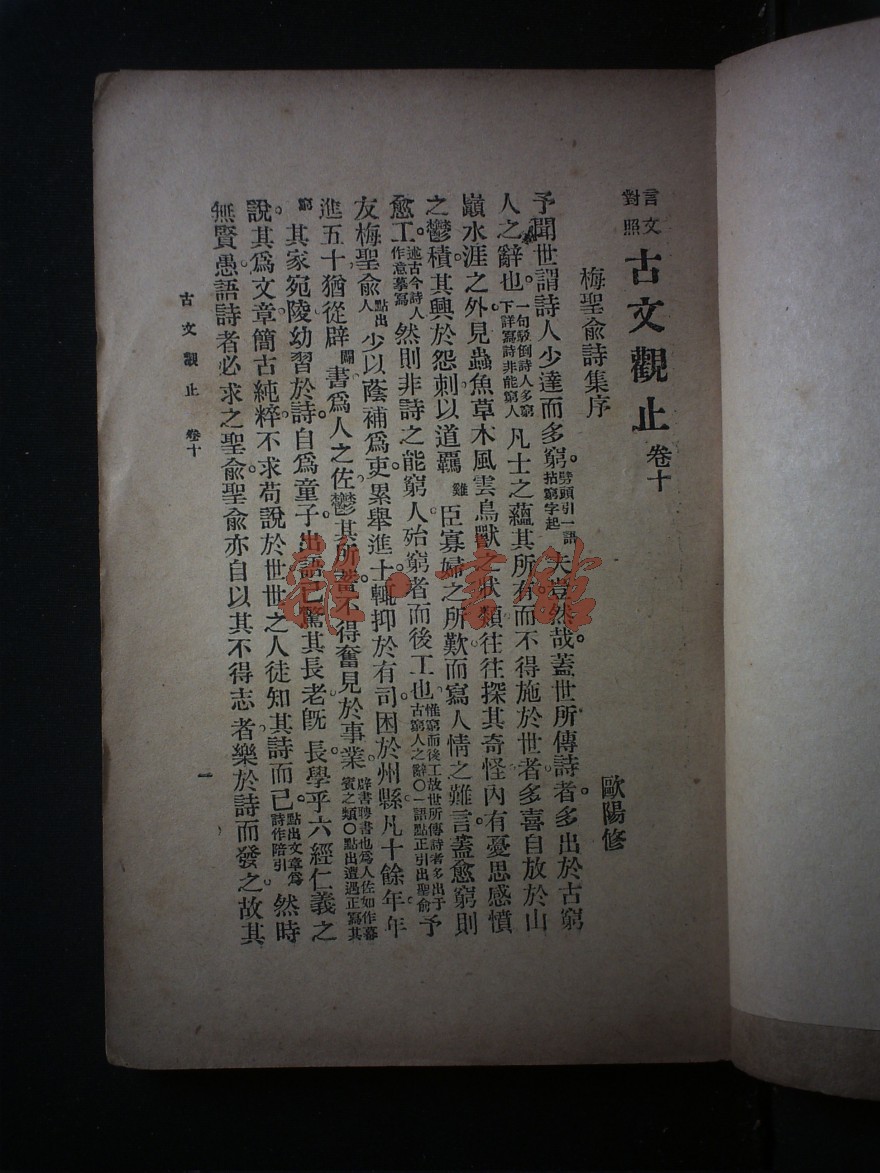 言文對照 古文觀止 卷十
梅聖俞詩集序 歐陽修
予聞世謂詩人少達而多窮。劈頭引一語拈窮字起夫豈然哉。蓋世所傳詩者。多出於古窮
人之辭也。一句駁倒詩人多窮下詳寫詩非能窮人凡士之蘊其所有而不得施於世者。多喜自放於山
巔水涯之外。見蟲魚草木風雲鳥獸之狀類。往往探其奇怪。內有憂思感憤
之鬱積。其興於怨刺。以道羈雖臣寡婦之所歎。而寫人情之難言。蓋愈窮則
愈工。述古今詩人作意摹寫然則非詩之能窮人。殆窮者而後工也。惟窮而後工故世所傳詩者多出于古窮人之辭〇一語點正引出聖俞予
友梅聖俞。點出人少以蔭補爲吏。累舉進士。輒抑於有司。困於州縣。凡十餘年。年
進五十。猶從辟闢書。爲人之佐。鬱其所蓄。不得奮見於事業。辟書聘書也爲人佐如作幕賓之類〇點出遭遇正寫其
窮其家宛陵。幼習於詩。自爲童子。出語已驚其長老。旣長。學乎六經仁義之
說。其爲文章。簡古純粹。不求苟說於世。世之人徒知其詩而已。點出文章爲詩作陪引然時
無賢愚。語詩者必求之聖俞。聖俞亦自以其不得志者。樂於詩而發之。故其
古文觀止 卷十 一
雜·書館